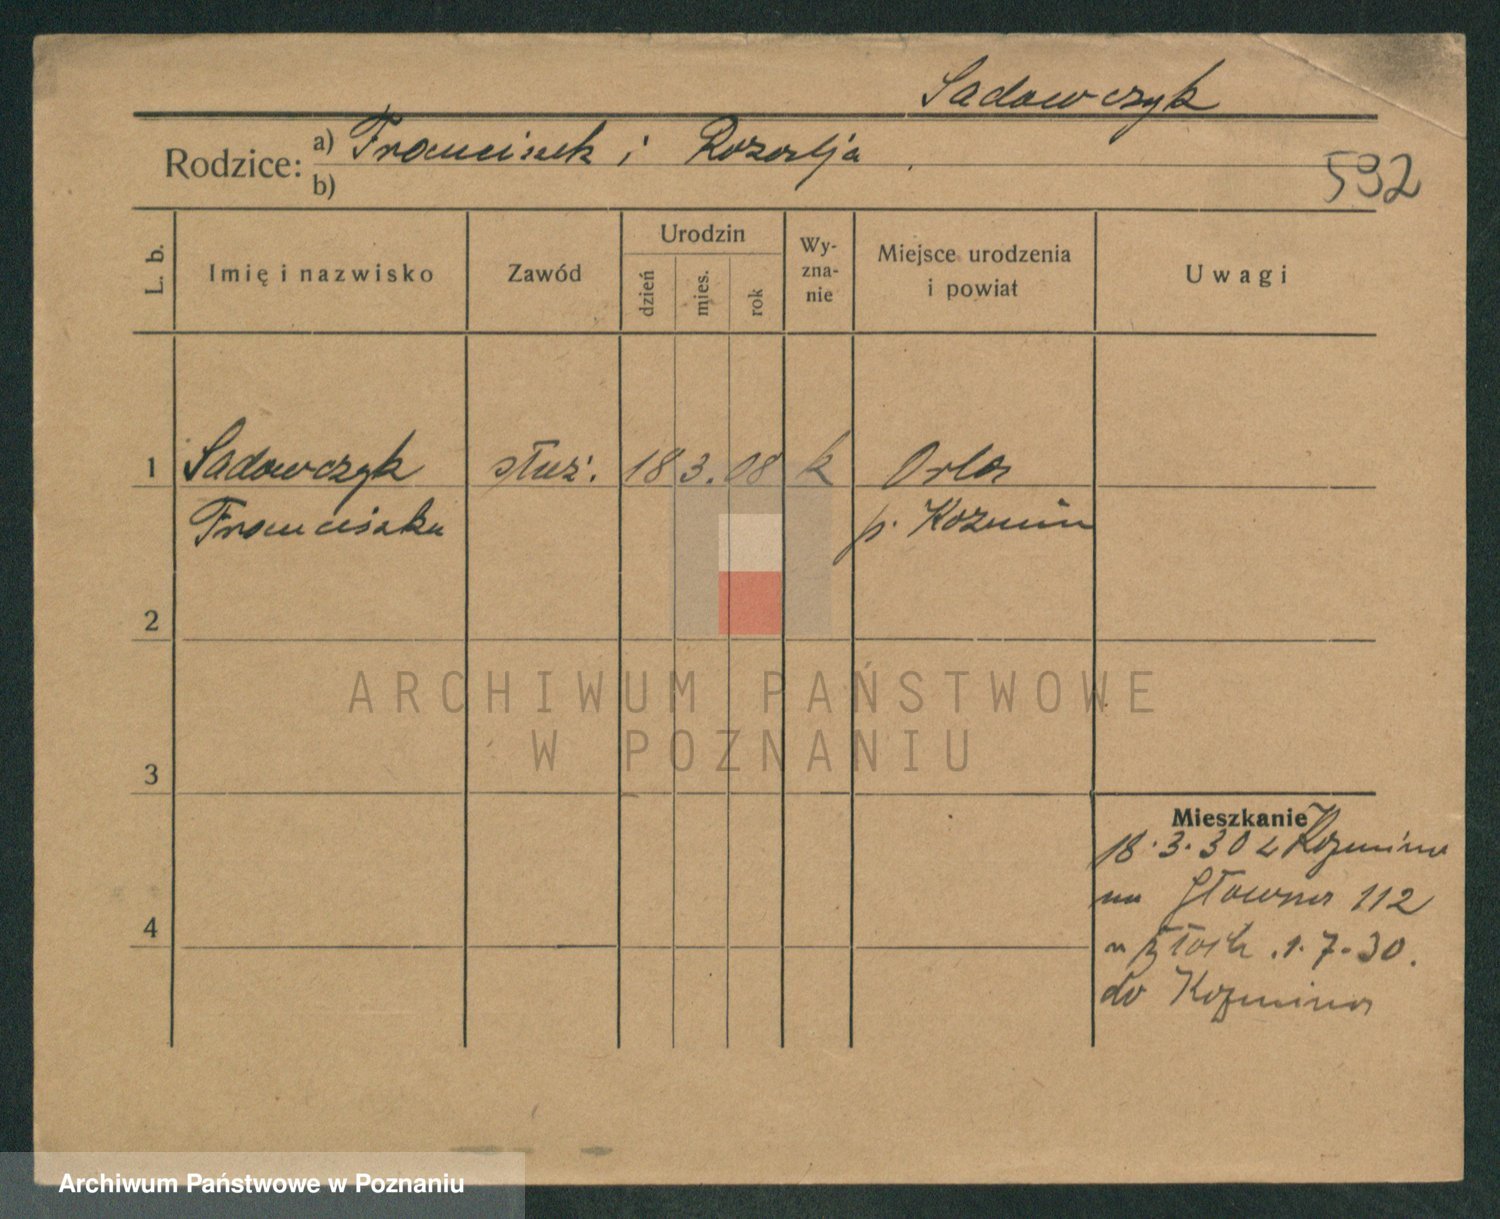 Sadowczyk
Rodzice: a) Franciszek i Rozalja
b)
592
L. b.
Imię i nazwisko
Zawód
Urodzin
dzień
mies.
rok
Wy-
zna-
nie
Miejsce urodzenia
i powiat
Uwagi
1 Sadowczyk służ. 18 3. 08 k Orla
Franciszka p. Kozmin
2
3
4
Mieszkanie
18.3.30 z Kozmina
na Główna 112
1.7.30.
do Kozmina
ARCHIWUM PAŃSTWOWE
W POZNANIU
Archiwum Państwowe w Poznaniu